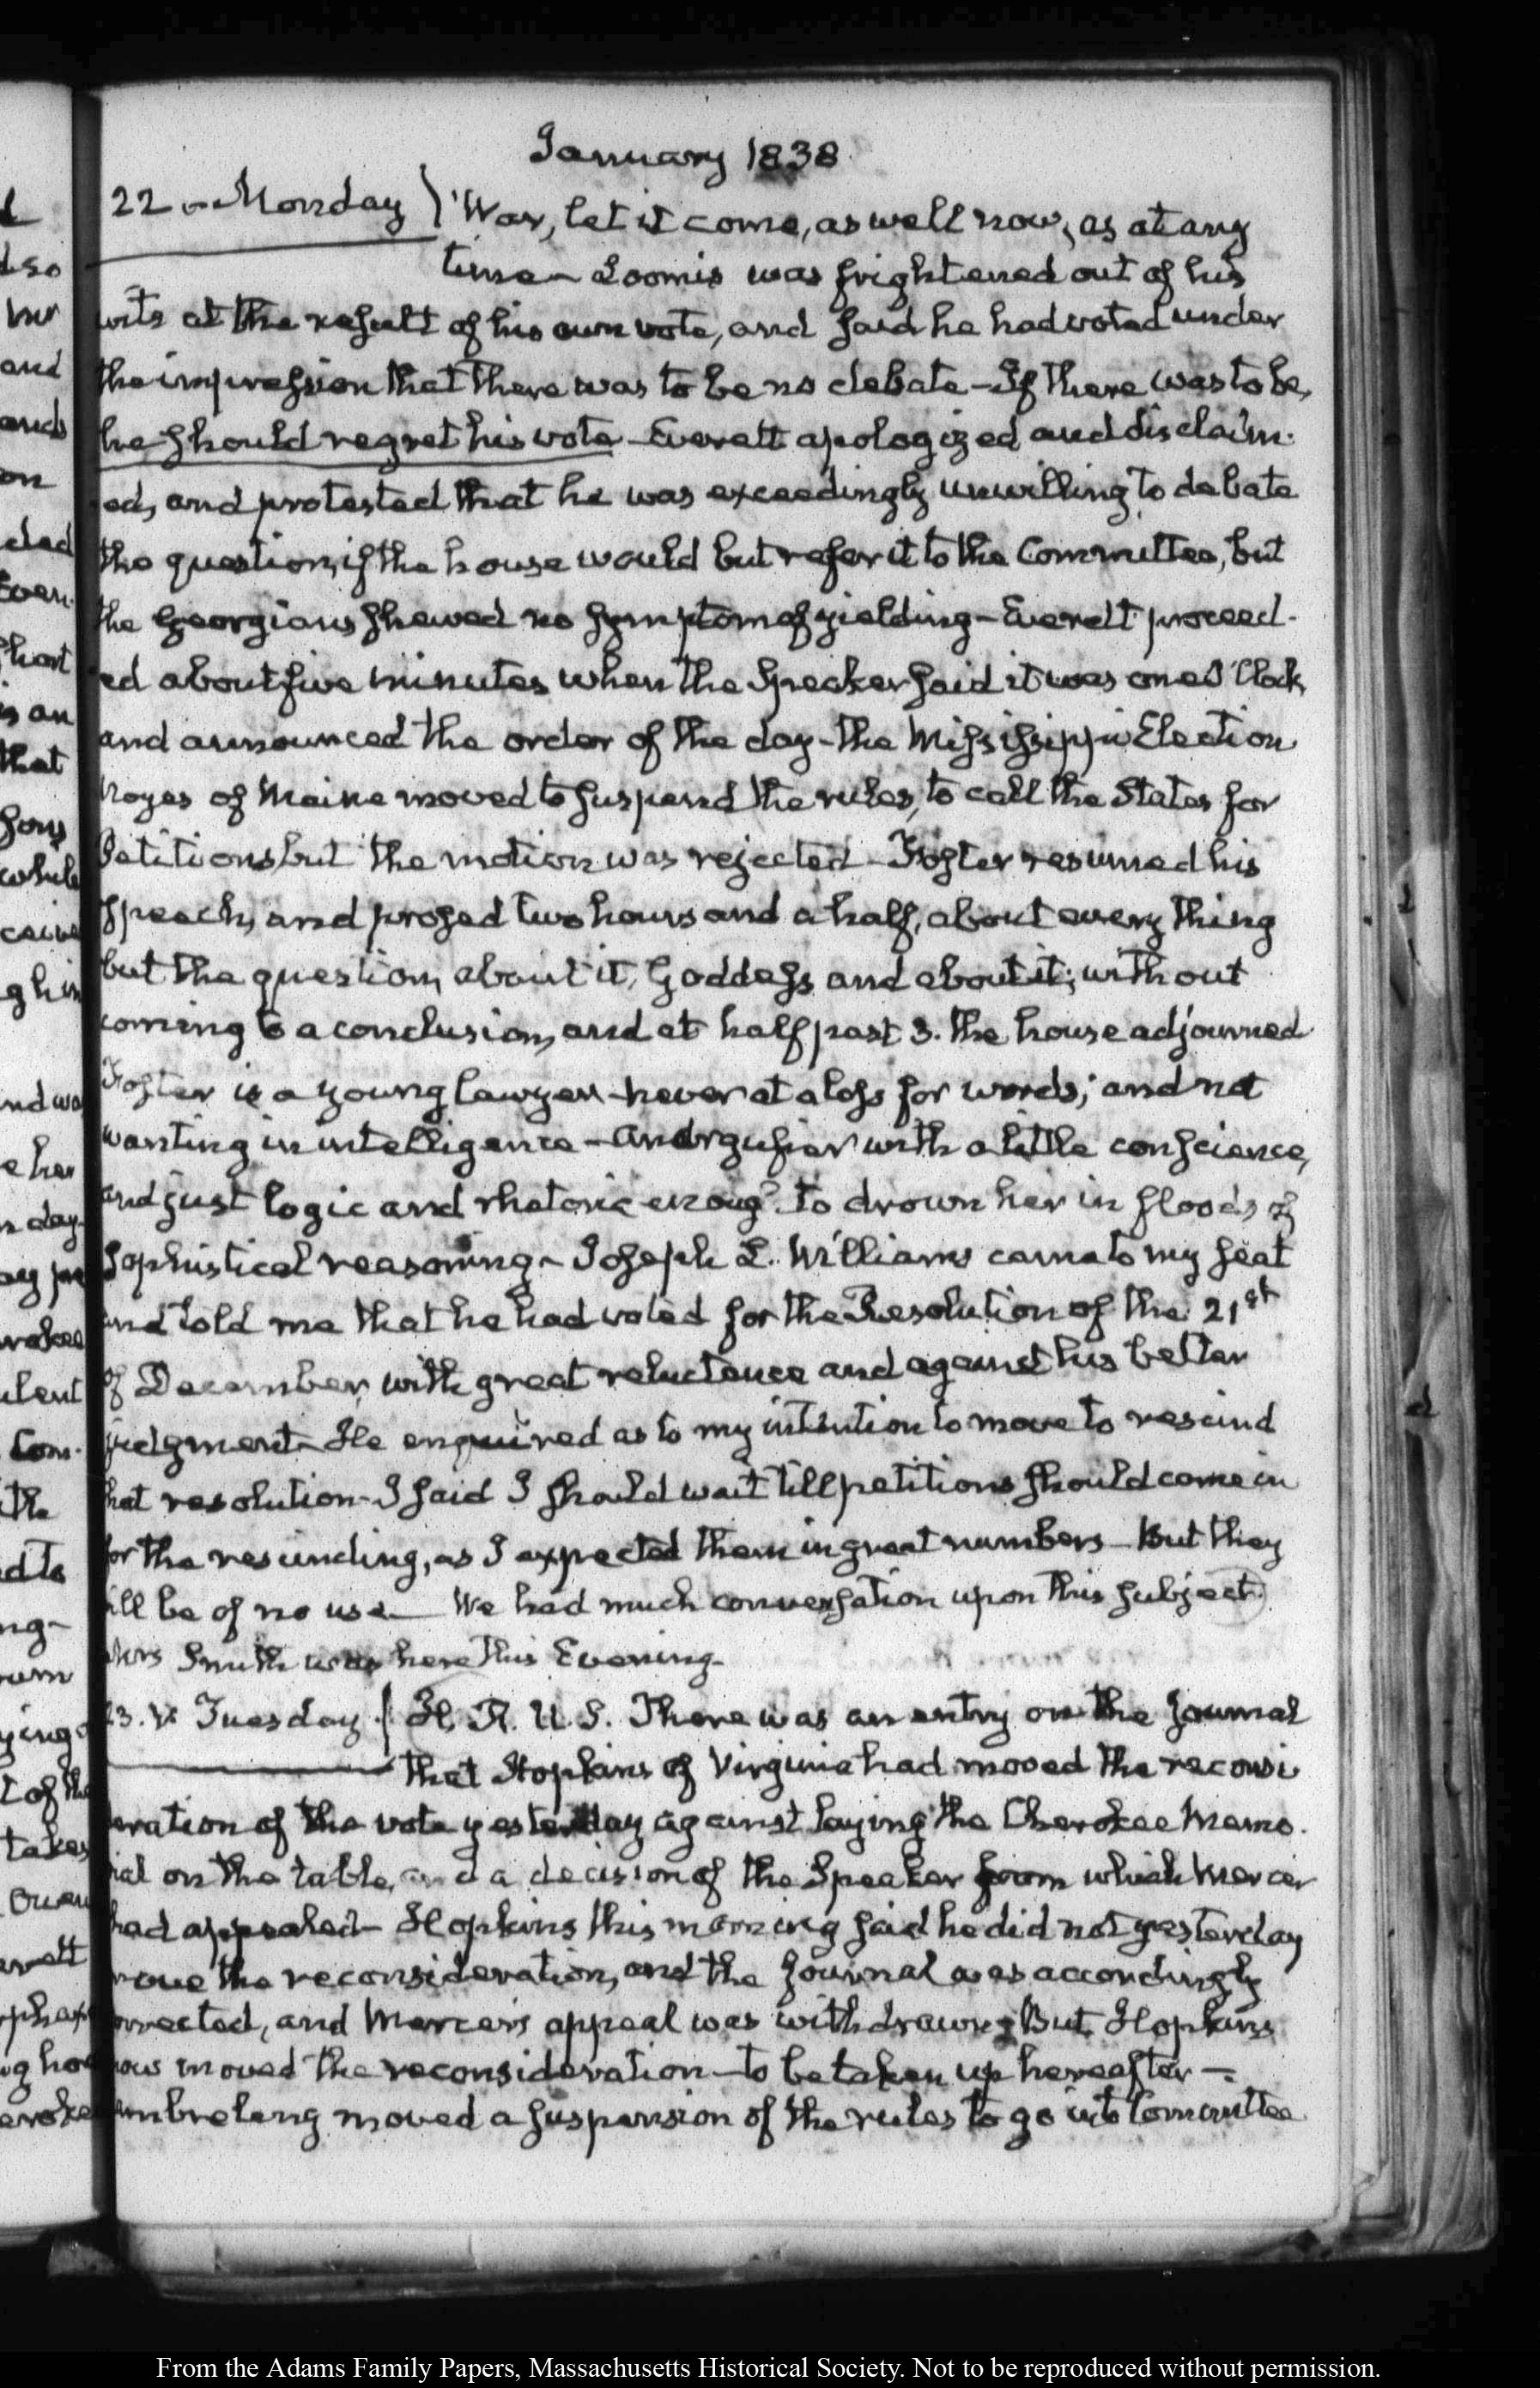 January 1838
22. Monday } War, let it come, as well now, as at any
time – Loomis was frightened out of his
wits at the result of his own vote, and said he had voted under
the impression that there was to be no debate – If there was to be,
he should regret his vote – Everett apologized and disclaim-
ed, and protested that he was exceedingly unwilling to debate
the question, if the house would but refer it to the Committee, but
the Georgians shewed no symptom of yielding – Everett proceed-
ed about five minutes when the Speaker said it was one O'Clock,
and announced the order of the day – the Mississippi Election
Noyes of Maine moved to suspend the rules, to call the States for
Petitions but the motion was rejected – Foster resumed his
Speech, and prosed two hours and a half, about every thing
but the question, about it, Goddess and about it; without
coming to a conclusion, and at half past 3. the house adjourned
Foster is a young lawyer – never at a loss for words; and not
wanting in intelligence – with a little conscience,
and just logic and rhetoric enough to drown her in floods of
Sophistical reasoning – Joseph L. Williams came to my seat
and told me that he had voted for the Resolution of the 21st
of December, with great reluctance and against his better
judgment – He enquired as to my intention to move to rescind
that resolution – I said I should wait till petitions should come in
for the rescinding, as I expected them in great numbers – But they
will be of no use – We had much conversation upon this subject.
Mrs Smith was here this Evening –
23. Tuesday } H. R. U. S. There was an entry on the Journal
that Hopkins of Virginia had moved the reconsi
deration of the vote yesterday against laying the Cherokee Memo-
rial on the table, and a decision of the Speaker from which Mercer
had appealed – Hopkins this morning said he did not yesterday
move the reconsideration, and the Journal was accordingly
corrected, and Mercer's appeal was withdrawn – But Hopkins
now moved the reconsideration – to be taken up hereafter –
Cambreleng moved a suspension of the rules to go into Committee
From the Adams Family Papers, Massachusetts Historical Society. Not to be reproduced without permission.